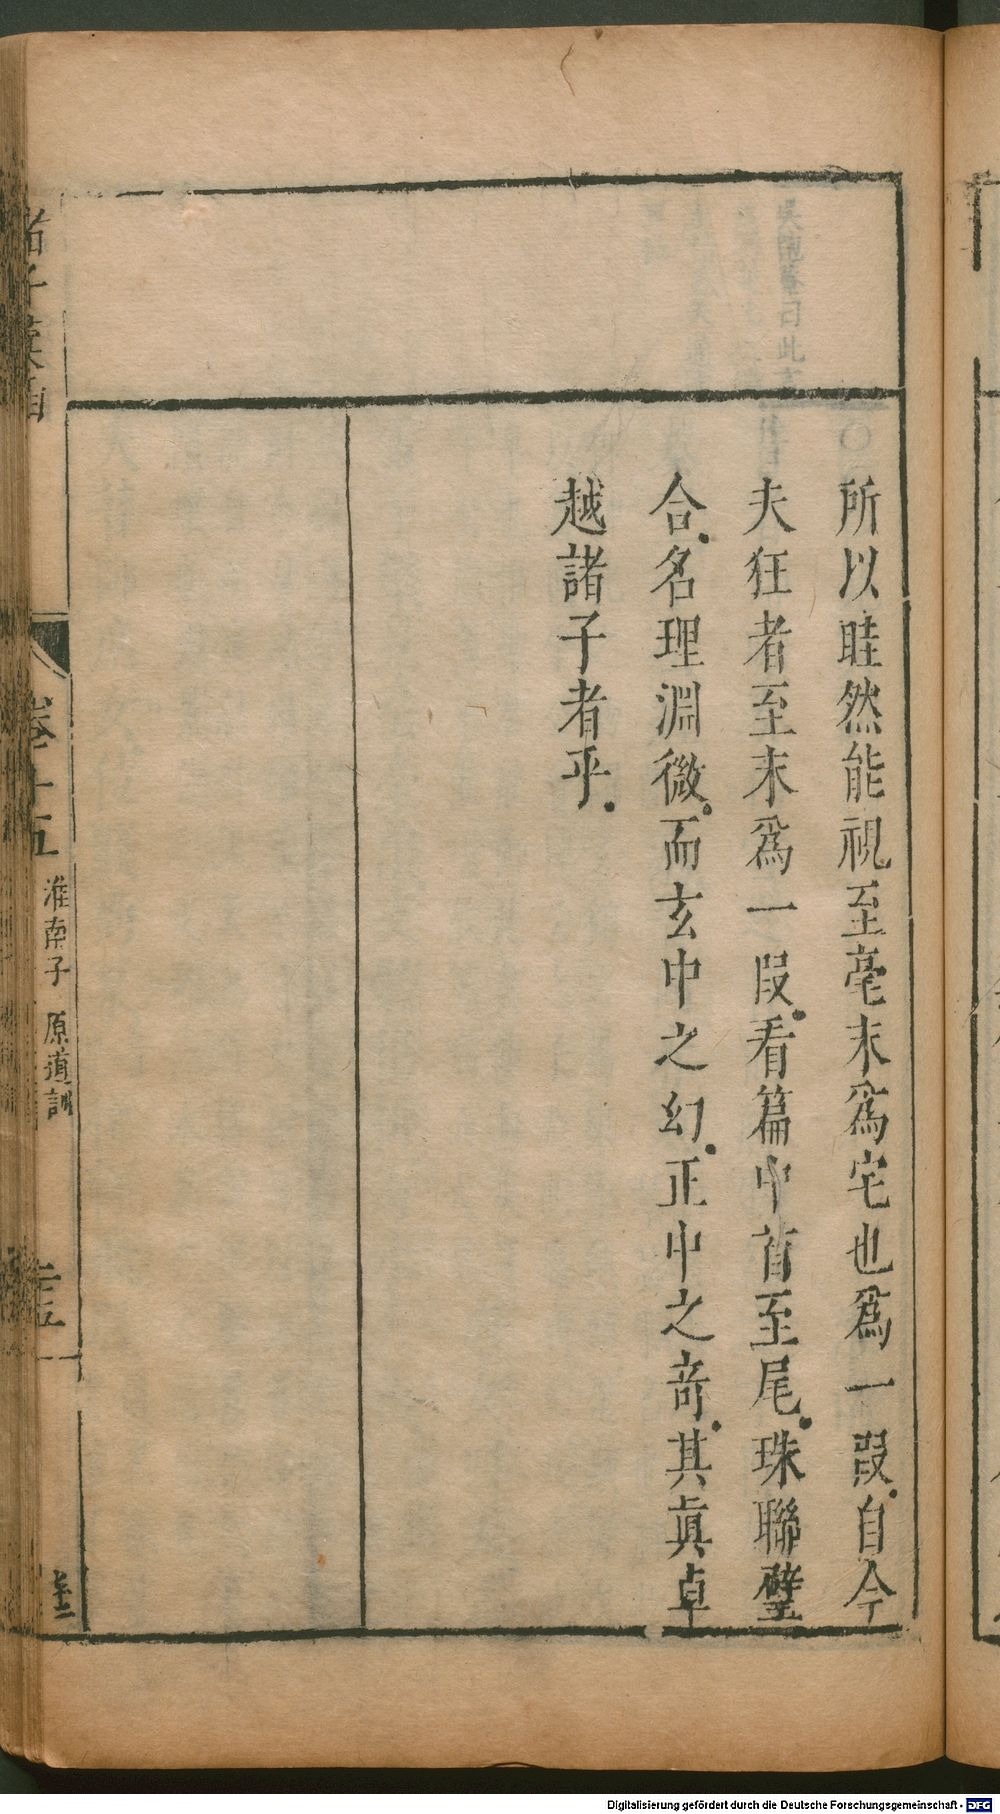 所以眭然能視至毫末爲宅也爲一段自今
夫狂者至末爲一段看篇中首至尾珠聯璧
合名理淵微而玄中之幻正中之奇其眞卓
越諸子者乎
卷十五
淮南子 原道訓
Digitalisierung gefördert durch die Deutsche Forschungsgemeinschaft - DFG